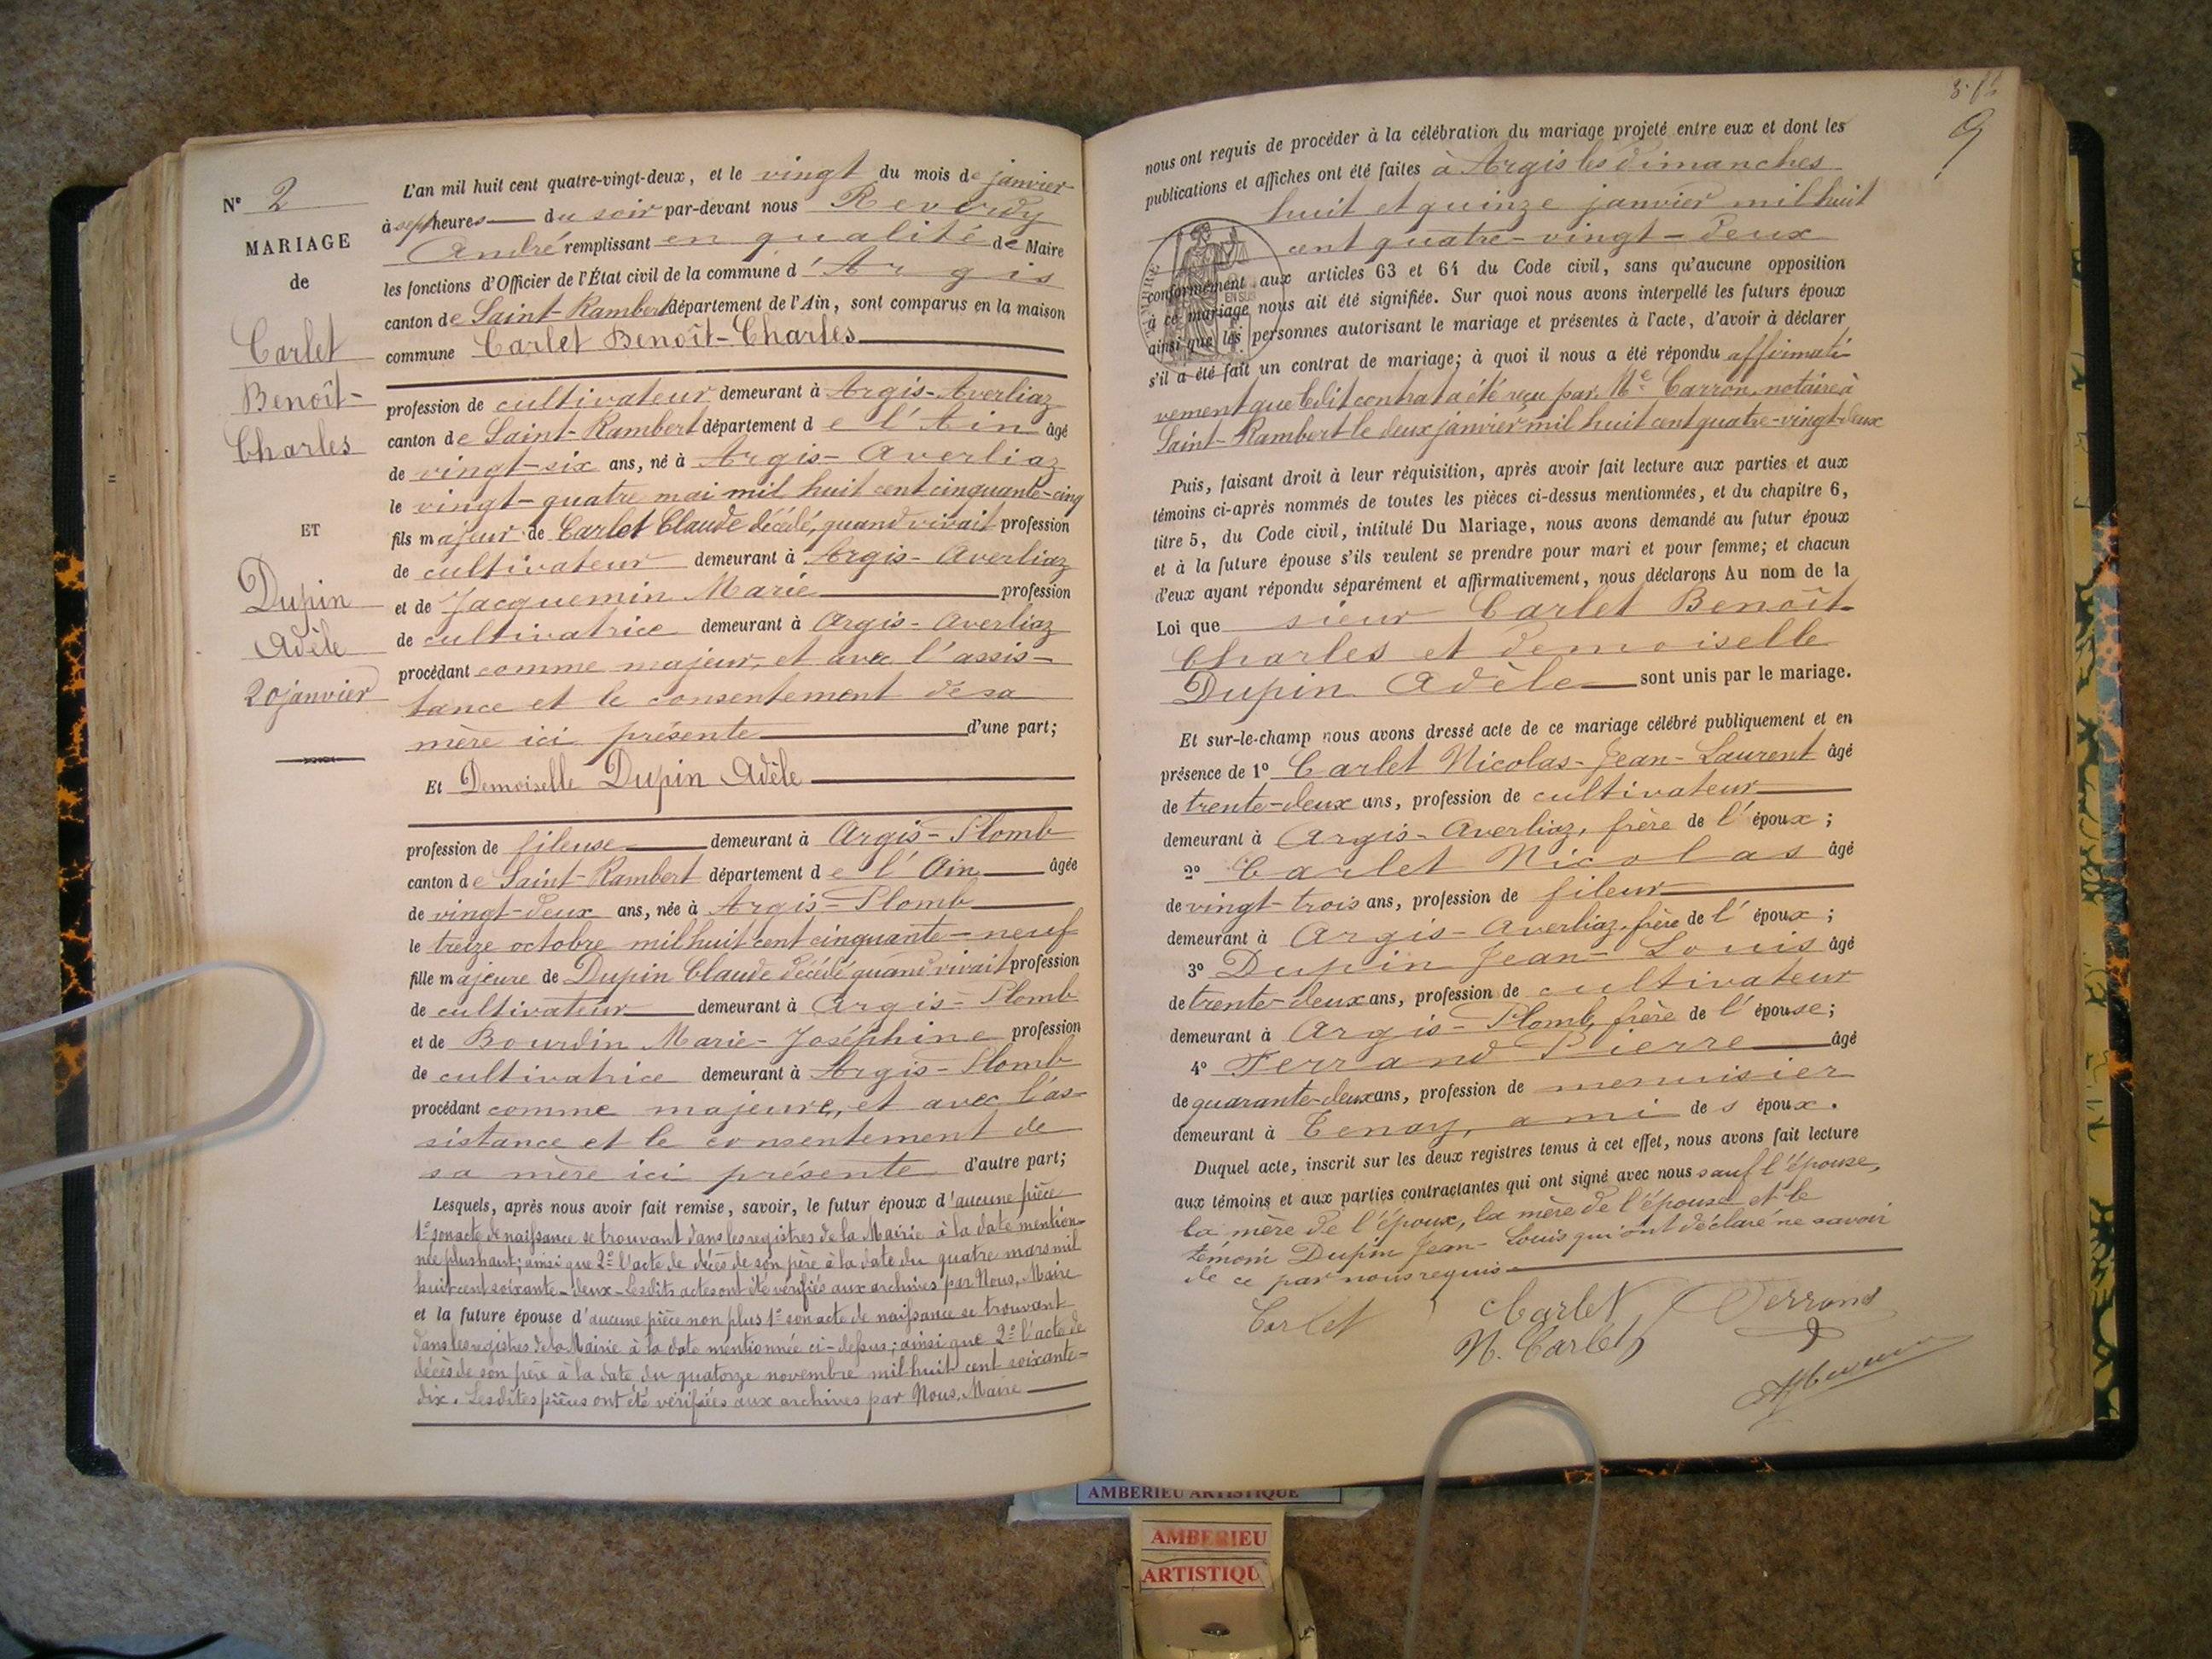 N° 2
MARIAGE
de
Carlet
Benoît-
Charles
ET
Dupin
Adèle
20 janvier
L'an mil huit cent quatre-vingt-deux, et le vingt du mois de janvier
à sept heures du soir par-devant nous
André remplissant en qualité de Maire
les fonctions d'Officier de l'État civil de la commune d'Argis
canton de Saint-Rambert département de l'Ain, sont comparus en la maison
commune Carlet Benoît-Charles
profession de cultivateur demeurant à Argis-Averliaz
canton de Saint-Rambert département de l'Ain âgé
de vingt-six ans, né à Argis-Averliaz
le vingt-quatre mai mil huit cent cinquante-cinq
fils majeur de Carlet Claude décédé, quand vivait profession
de cultivateur demeurant à Argis-Averliaz
et de Jacquemin Marie profession
de cultivatrice demeurant à Argis-Averliaz
procédant comme majeur, et avec l'assis-
tance et le consentement de sa
mère ici présente d'une part;
Et Demoiselle Dupin Adèle
profession de fileuse demeurant à Argis-Plomb
canton de Saint-Rambert département de l'Ain âgée
de vingt-deux ans, née à Argis-Plomb
le treize octobre mil huit cent cinquante-neuf
fille majeure de Dupin Claude décédé quand vivait profession
de cultivateur demeurant à Argis-Plomb
et de Bourdin Marie-Joséphine profession
de cultivatrice demeurant à Argis-Plomb
procédant comme majeure, et avec l'as-
sistance et le consentement de
sa mère ici présente d'autre part;
Lesquels, après nous avoir fait remise, savoir, le futur époux d'aucune pièce
1° son acte de naissance se trouvant dans les registres de la Mairie à la date mention-
née plus haut; ainsi que 2° l'acte de décès de son père à la date du quatre mars mil
huit cent soixante-deux - Lesdits actes ont été vérifiés aux archives par Nous, Maire
et la future épouse d'aucune pièce non plus 1° son acte de naissance se trouvant
dans les registres de la Mairie à la date mentionnée ci-dessus; ainsi que 2° l'acte de
décès de son père à la date du quatorze novembre mil huit cent soixante-
dix. Lesdites pièces ont été vérifiées aux archives par Nous, Maire
9
nous ont requis de procéder à la célébration du mariage projeté entre eux et dont les
publications et affiches ont été faites à Argis les dimanches
huit et quinze janvier mil huit
cent quatre-vingt-deux
conformément aux articles 63 et 64 du Code civil, sans qu'aucune opposition
à ce mariage nous ait été signifiée. Sur quoi nous avons interpellé les futurs époux
ainsi que les personnes autorisant le mariage et présentes à l'acte, d'avoir à déclarer
s'il a été fait un contrat de mariage; à quoi il nous a été répondu affirmati-
vement que ledit contrat a été reçu par Me Carron, notaire à
Saint-Rambert le deux janvier mil huit cent quatre-vingt-deux
Puis, faisant droit à leur réquisition, après avoir fait lecture aux parties et aux
témoins ci-après nommés de toutes les pièces ci-dessus mentionnées, et du chapitre 6,
titre 5, du Code civil, intitulé Du Mariage, nous avons demandé au futur époux
et à la future épouse s'ils veulent se prendre pour mari et pour femme; et chacun
d'eux ayant répondu séparément et affirmativement, nous déclarons Au nom de la
Loi que sieur Carlet Benoît-
Charles et demoiselle
Dupin Adèle sont unis par le mariage.
Et sur-le-champ nous avons dressé acte de ce mariage célébré publiquement et en
présence de 1° Carlet Nicolas-Jean-Laurent âgé
de trente-deux ans, profession de cultivateur
demeurant à Argis-Averliaz, frère de l'époux;
2° Carlet Nicolas âgé
de vingt-trois ans, profession de fileur
demeurant à Argis-Averliaz, frère de l'époux;
3° Dupin Jean-Louis âgé
de trente-deux ans, profession de cultivateur
demeurant à Argis-Plomb, frère de l'épouse;
4° Ferrand Pierre âgé
de quarante-deux ans, profession de menuisier
demeurant à Tenay, ami des époux.
Duquel acte, inscrit sur les deux registres tenus à cet effet, nous avons fait lecture
aux témoins et aux parties contractantes qui ont signé avec nous sauf l'épouse,
la mère de l'époux, la mère de l'épouse et le
témoin Dupin Jean-Louis qui ont déclaré ne savoir
de ce par nous requis
Carlet Carlet Ferrand
N. Carlet
AMBERIEU ARTISTIQUE
AMBERIEU
ARTISTIQU